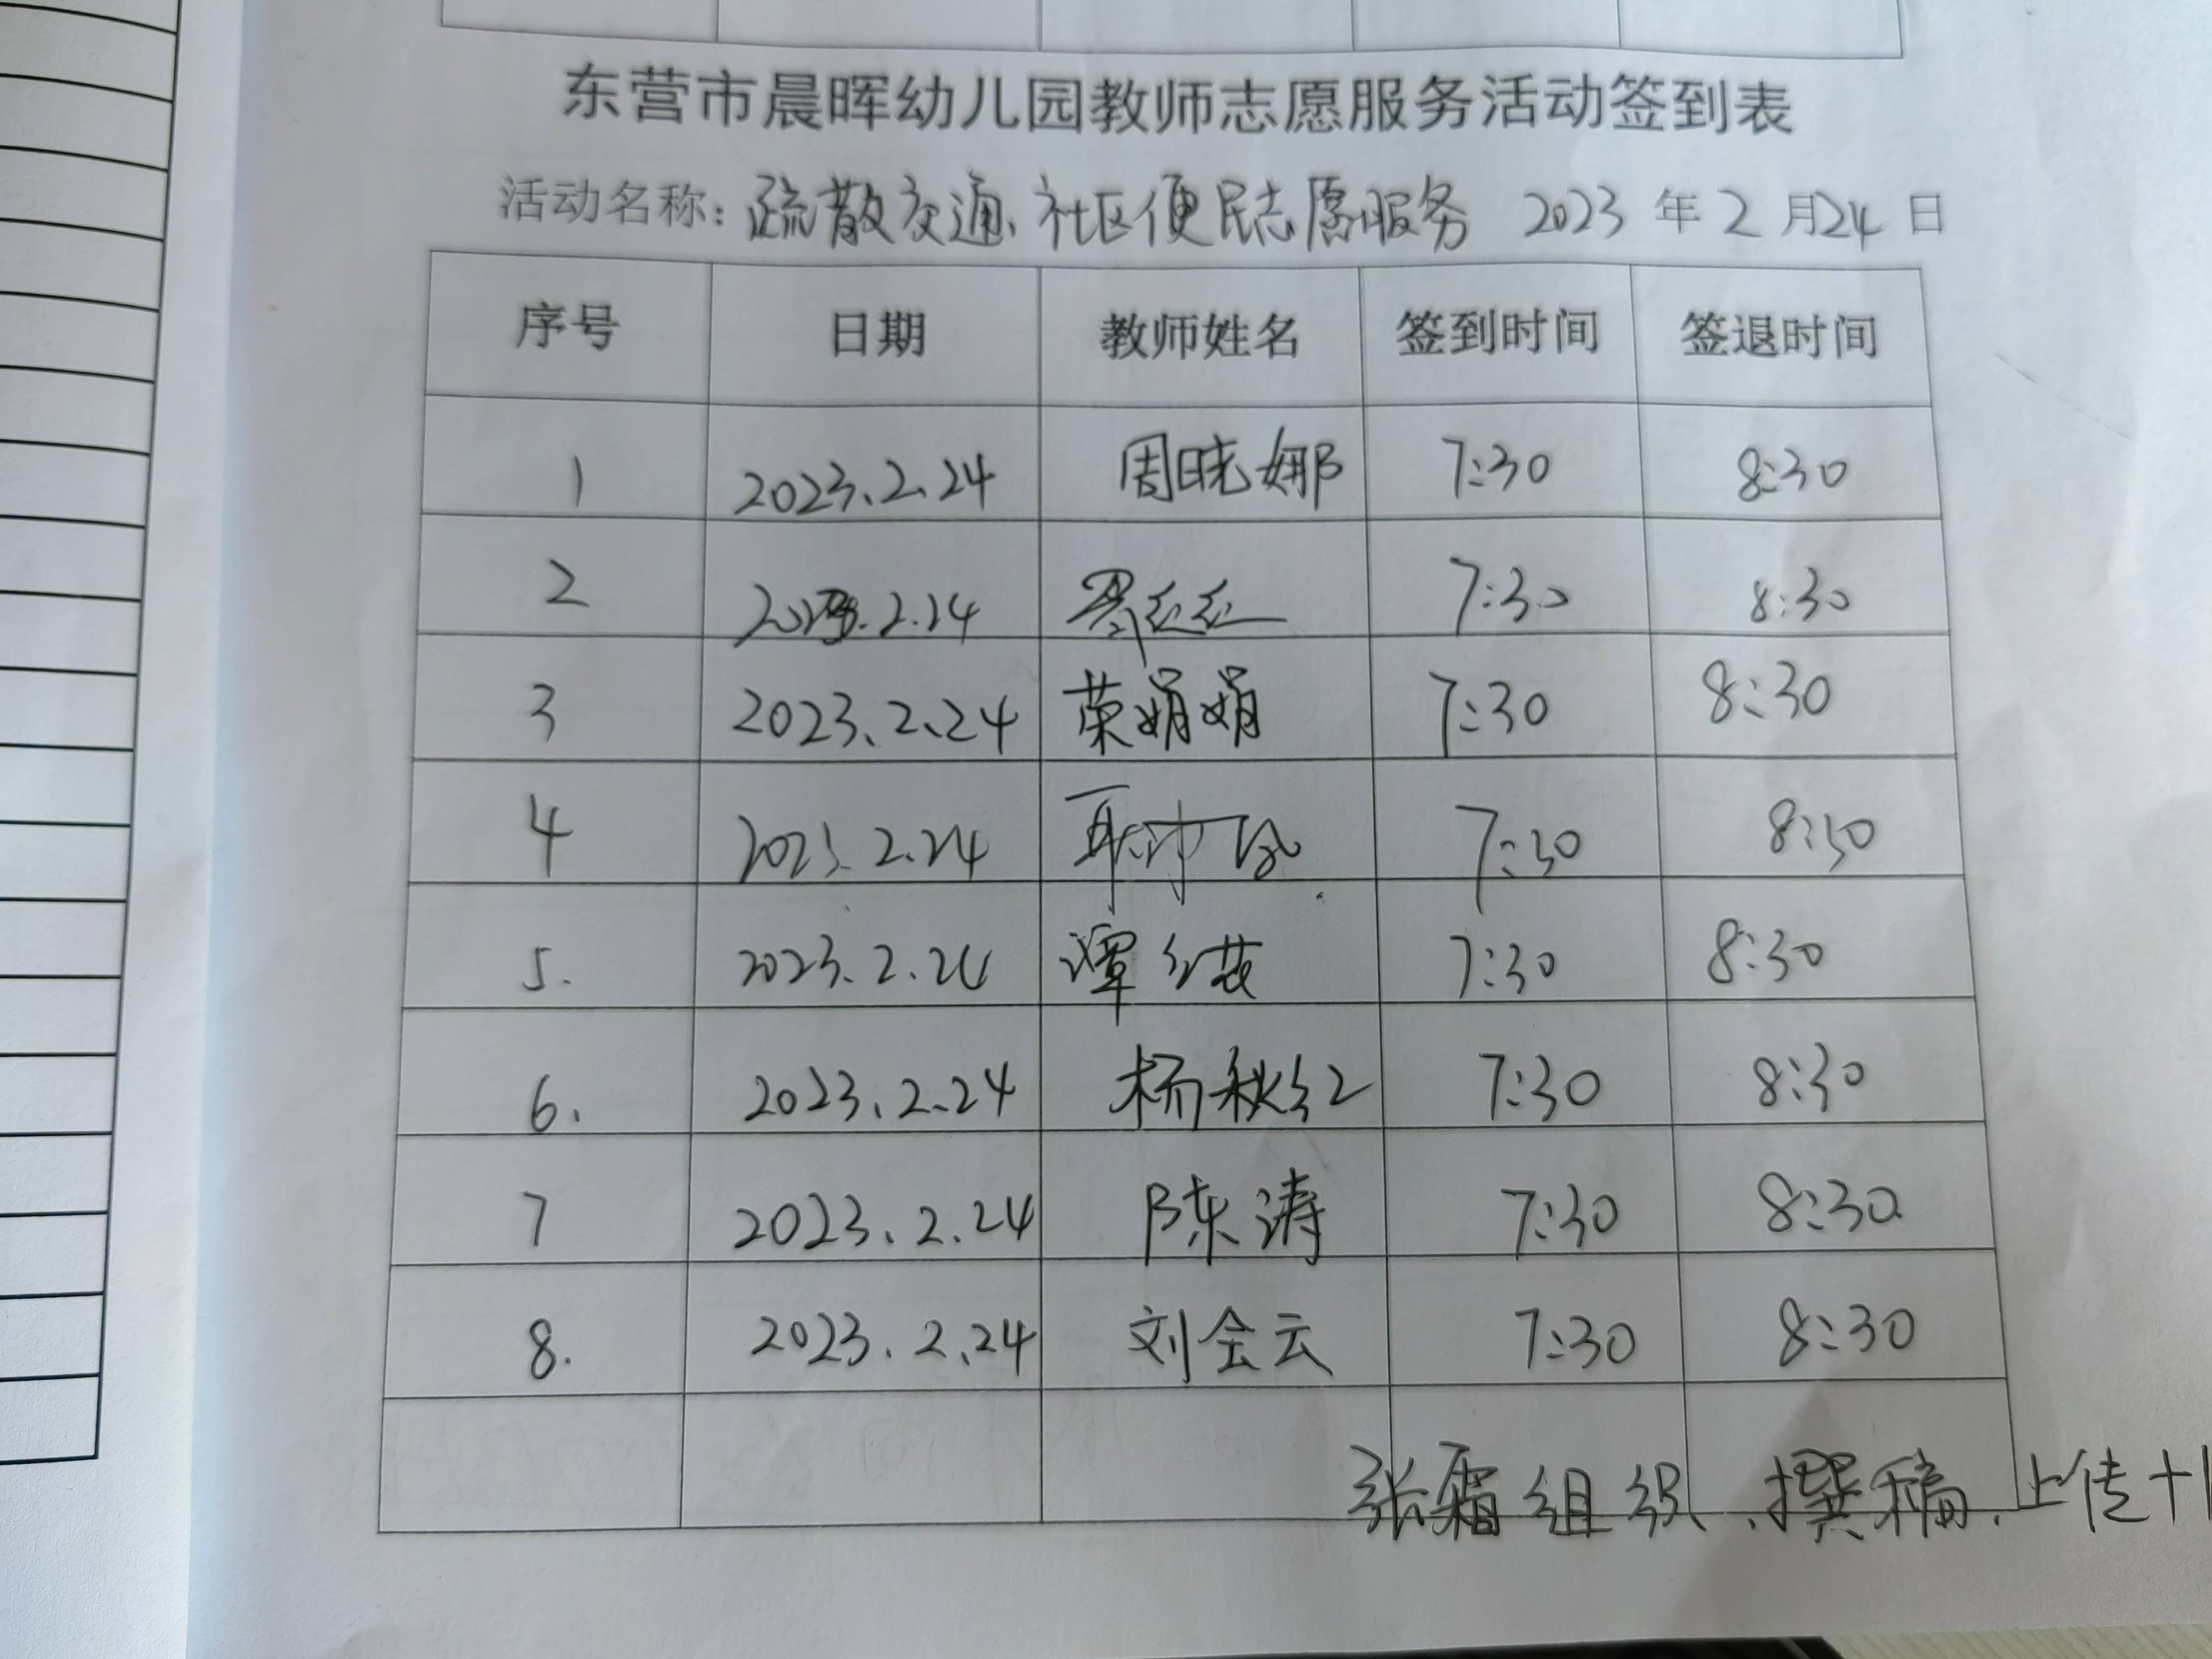 东营市晨晖幼儿园教师志愿服务活动签到表
活动名称：疏散交通、社区便民志愿服务 2023 年 2 月 24 日
序号 日期 教师姓名 签到时间 签退时间
1 2023.2.24 周晓娜 7:30 8:30
2 2023.2.24 7:30 8:30
3 2023.2.24 荣娟娟 7:30 8:30
4 2023.2.24 7:30 8:30
5. 2023.2.24 谭红英 7:30 8:30
6. 2023.2.24 杨秋红 7:30 8:30
7 2023.2.24 陈涛 7:30 8:30
8. 2023.2.24 刘会云 7:30 8:30
张霜组织、撰稿、上传+1